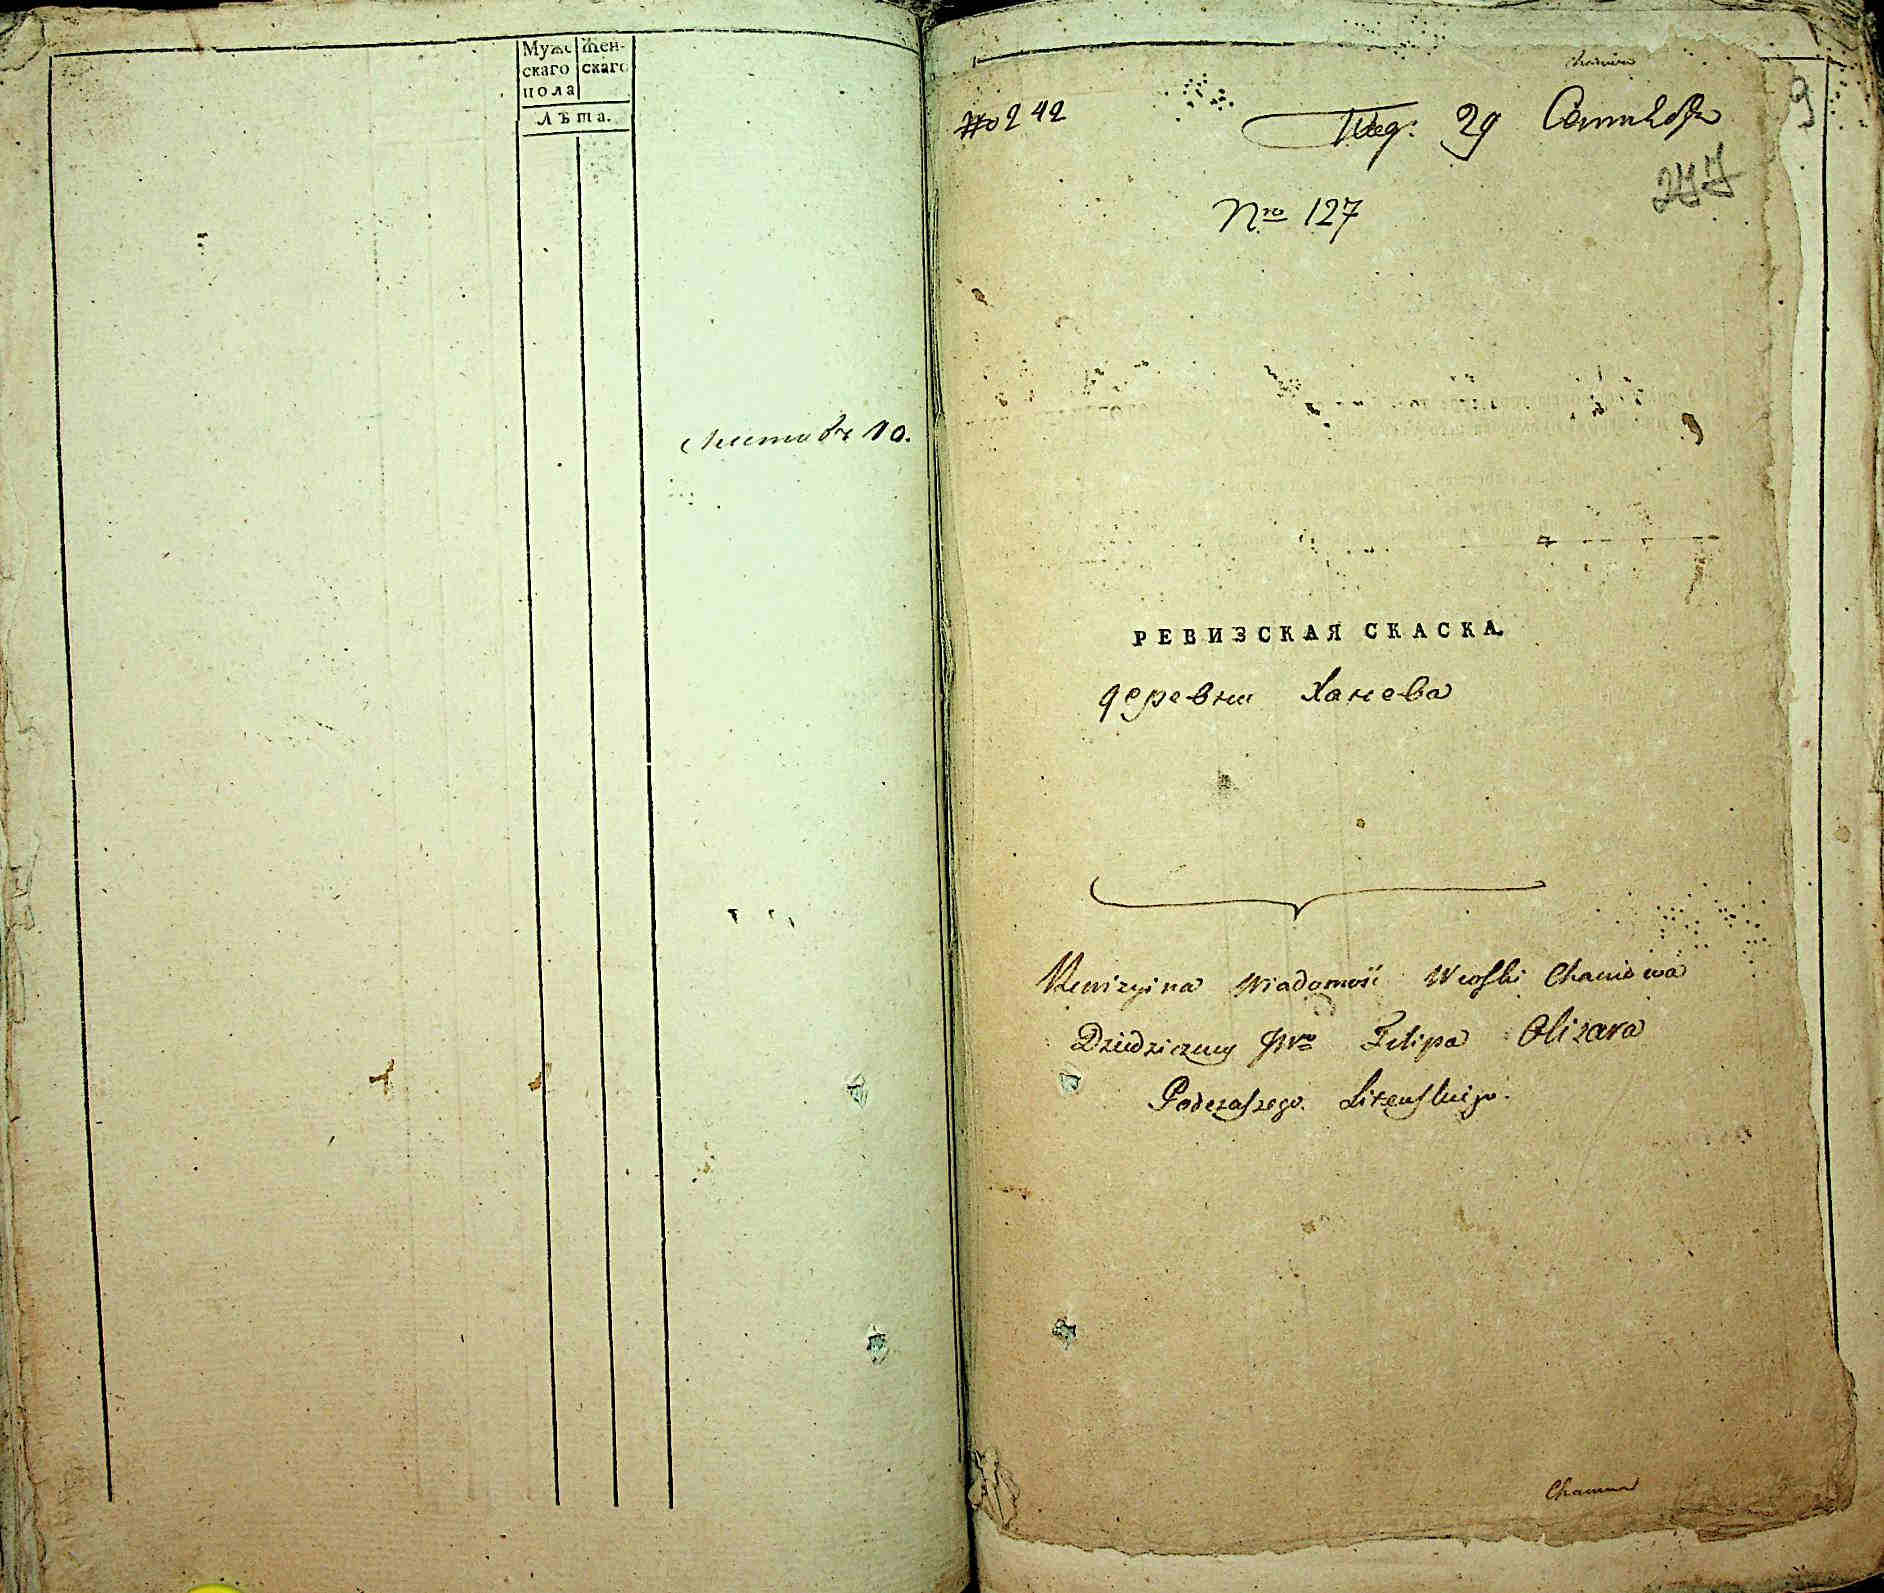 Муже Жен-
скаго скаго
пола
Лѣта.
Листовъ 10.
№ 242
Под: 29 Сентября
247
9
Nro 127
РЕВИЗСКАЯ СКАСКА.
деревни Ханева
Rewizyina Wiadomość Wioski Chaniowa
Dziedziczney JWo Filipa Olizara
Podczaszego Litewskiego.